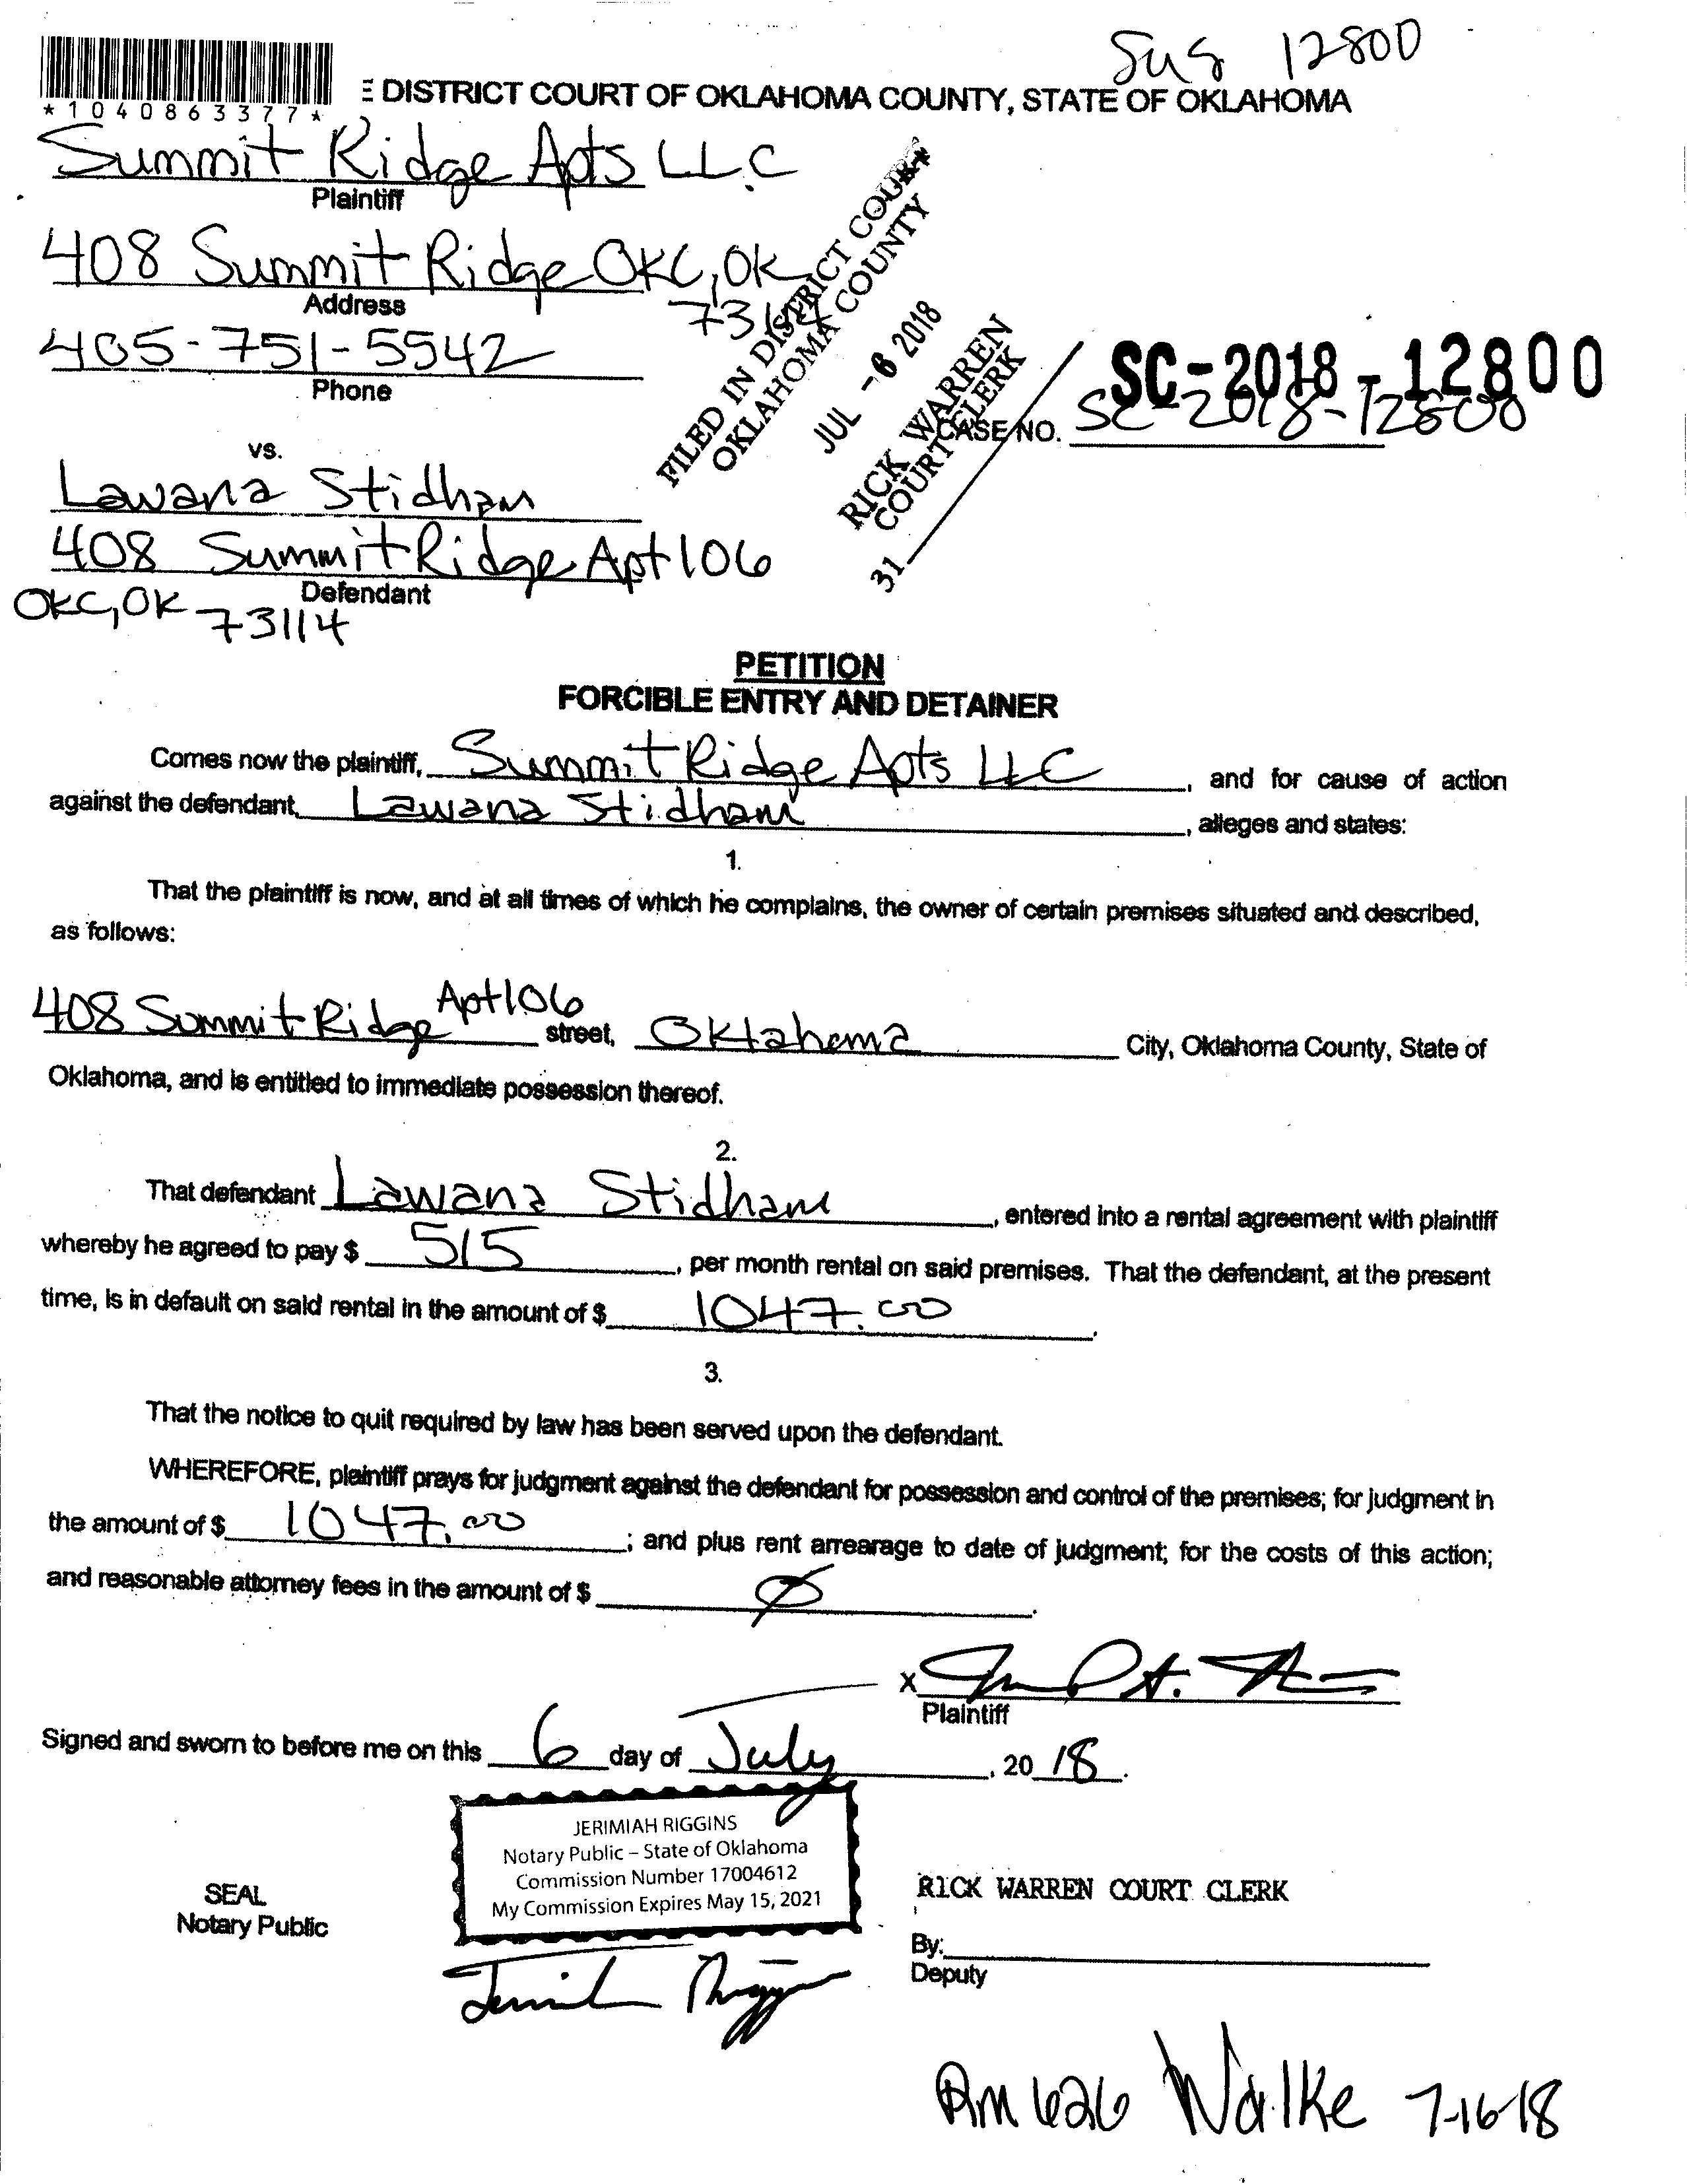 SUS 12800
E DISTRICT COURT OF OKLAHOMA COUNTY, STATE OF OKLAHOMA
*1040863377*
Summit Ridge Apts LLC
Plaintiff
408 Summit Ridge OKC, OK
73114
Address
405-751-5542
Phone
FILED IN DISTRICT COURT
OKLAHOMA COUNTY
JUL -6 2018
RICK WARREN
COURT CLERK
31
SC-2018-12800
CASE NO. SC-2018-12800
vs.
Lawana Stidham
408 Summit Ridge Apt 106
Defendant
OKC, OK 73114
PETITION
FORCIBLE ENTRY AND DETAINER
Comes now the plaintiff, Summit Ridge Apts LLC, and for cause of action
against the defendant, Lawana Stidham, alleges and states:
1.
That the plaintiff is now, and at all times of which he complains, the owner of certain premises situated and described,
as follows:
408 Summit Ridge Apt 106 street, Oklahoma City, Oklahoma County, State of
Oklahoma, and is entitled to immediate possession thereof.
2.
That defendant Lawana Stidham, entered into a rental agreement with plaintiff
whereby he agreed to pay $ 515, per month rental on said premises. That the defendant, at the present
time, is in default on said rental in the amount of $ 1047.00.
3.
That the notice to quit required by law has been served upon the defendant.
WHEREFORE, plaintiff prays for judgment against the defendant for possession and control of the premises; for judgment in
the amount of $ 1047.00; and plus rent arrearage to date of judgment; for the costs of this action;
and reasonable attorney fees in the amount of $ Ø.
X
Plaintiff
Signed and sworn to before me on this 6 day of July, 20 18.
JERIMIAH RIGGINS
Notary Public – State of Oklahoma
Commission Number 17004612
My Commission Expires May 15, 2021
SEAL
Notary Public
RICK WARREN COURT CLERK
By:
Deputy
Rm 626 Walke 7-16-18